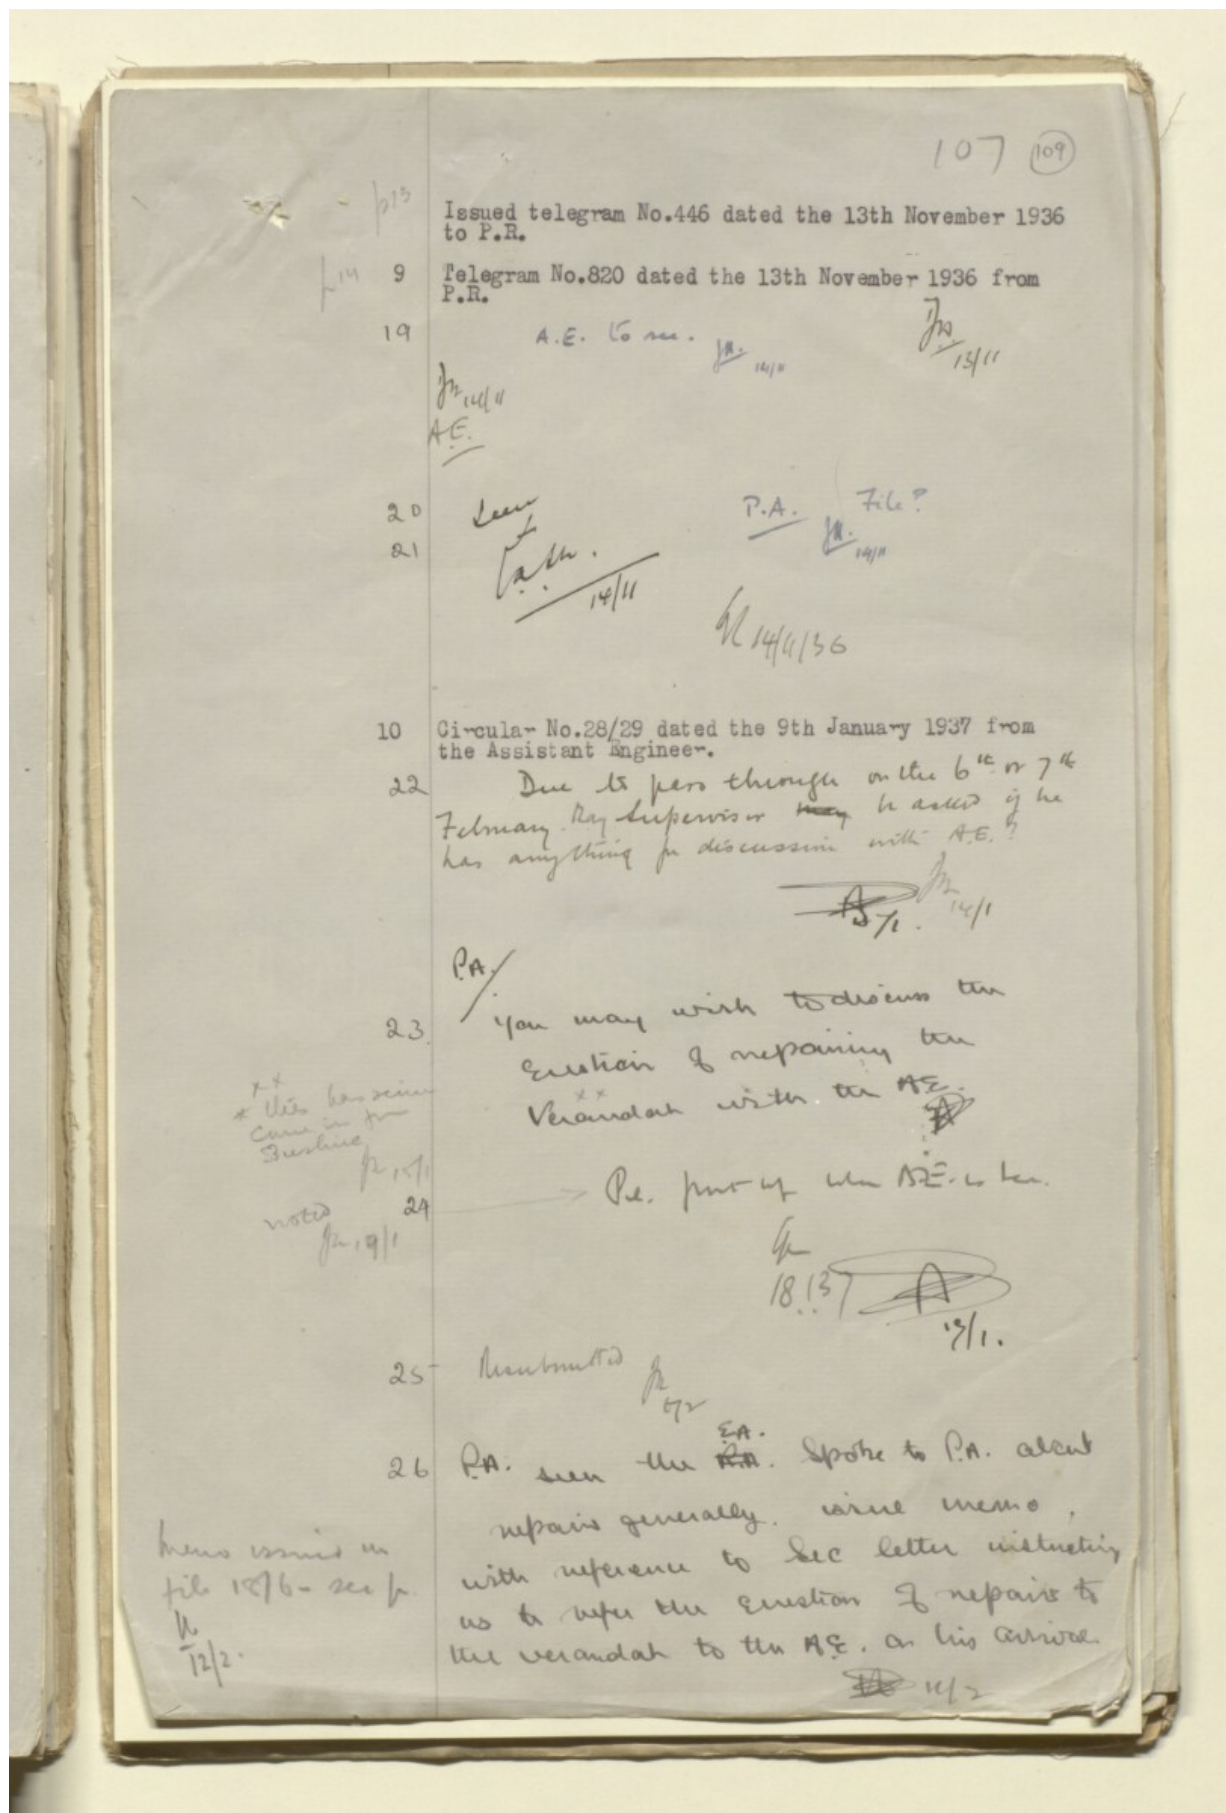 107 109
p13
Issued telegram No.446 dated the 13th November 1936
to P.R.
p14 9 Telegram No.820 dated the 13th November 1936 from
P.R.
19 A.E. to see. 14/11
13/11
14/11
A.E.
20 Seen P.A. File?
21 14/11
14/11
14/11/36
10 Circular No.28/29 dated the 9th January 1937 from
the Assistant Engineer.
22 Due to pass through on the 6th or 7th
February. May Supervisor may be asked if he
has anything for discussion with A.E.?
14/1
P.A.
23. You may wish to discuss the
Question of repairing the
Verandah xx with the A.E.
xx
* this has since
come in from
Bushire
15/1
24 Pl. put up when A.E. is here.
noted
19/1
18.1.37
19/1.
25 Resubmitted
26 P.A. seen the E.A. Spoke to P.A. about
repairs generally. issue memo,
with reference to Sec letter instructing
us to refer the Question of repairs to
the verandah to the A.E. on his arrival.
Memo issued in
file 18/6 - see p.
12/2.